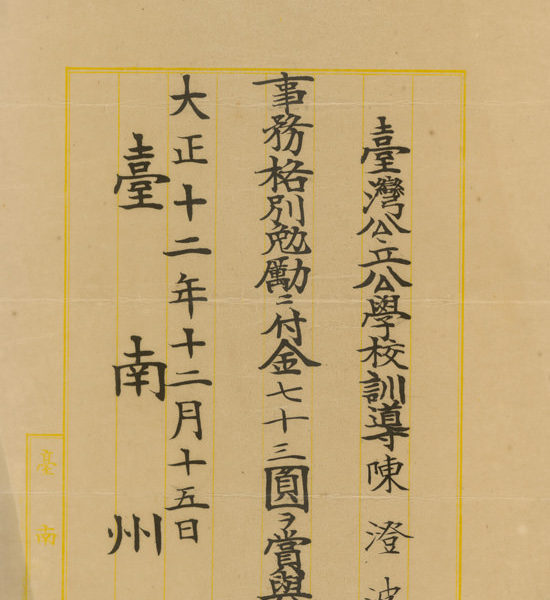 臺灣公立公學校訓導陳澄波
事務格別勉勵ニ付金七十三圓ヲ賞與
大正十二年十二月十五日
臺南州
臺南